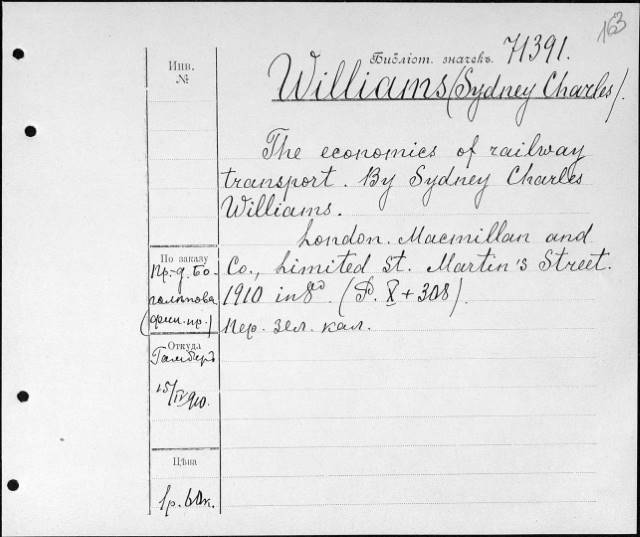 163
Библіот. значекъ. 71391.
Инв.
№
Williams (Sydney Charles).
The economics of railway
transport. By Sydney Charles
Williams.
London. Macmillan and
Co., Limited St. Martin's Street.
1910 in 8º. (P. X + 308).
Пер. зел. кал.
По заказу
Пр.-д. Бо-
голѣпова
(фин. пр.)
Откуда
Гамберъ
15/IV 910.
Цѣна
1р. 60к.